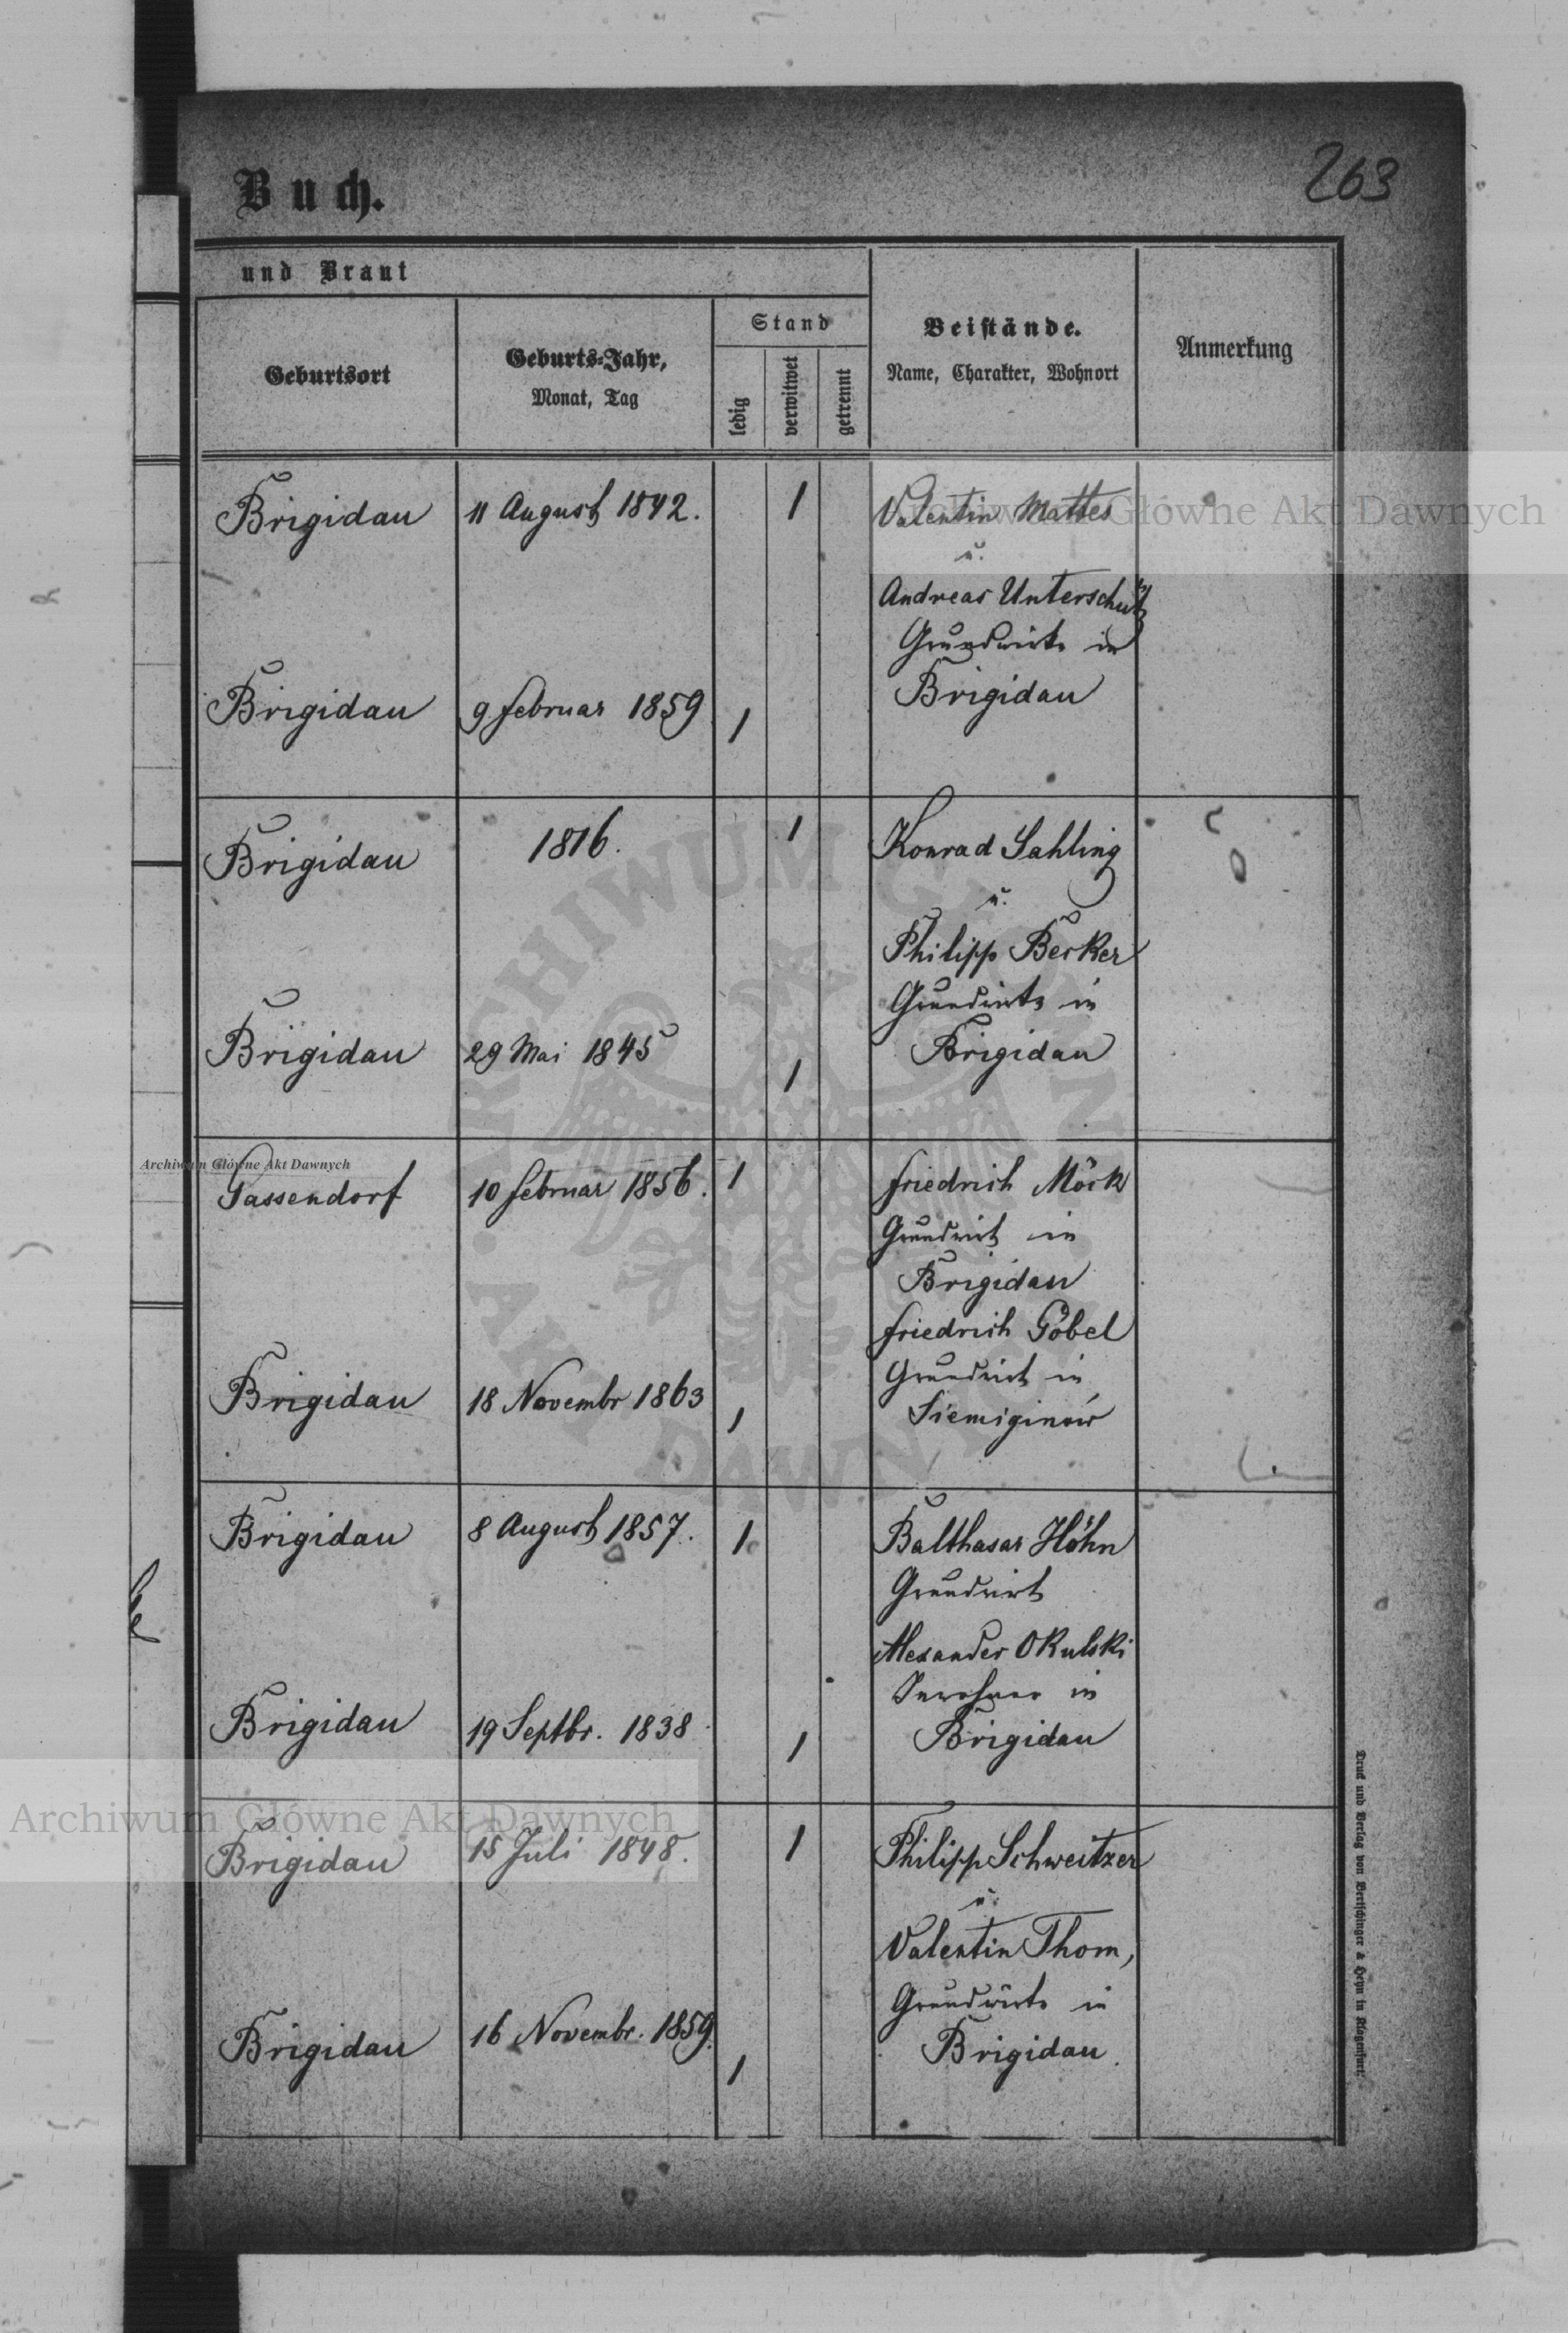 Buch.
263
und Braut
Geburtsort
Geburts-Jahr,
Monat, Tag
Stand
ledig
verwitwet
getrennt
Beistände.
Name, Charakter, Wohnort
Anmerkung
Brigidau 11 August 1842. 1 Valentin Mattes
u.
Andreas Unterschütz
Grundwirte in
Brigidau 9 Februar 1859 1 Brigidau
Brigidau 1816. 1 Konrad Sahling
u.
Philipp Becker
Grundwirte in
Brigidau 29 Mai 1845 1 Brigidau
Gassendorf 10 Februar 1856. 1 Friedrich Möck
Grundwirt in
Brigidau
Friedrich Göbel
Grundwirt in
Brigidau 18 Novembr 1863 1 Siemiginów
Brigidau 8 August 1857. 1 Balthasar Höhn
Grundwirt
Alexander Okulski
Inwohner in
Brigidau 19 Septbr. 1838 1 Brigidau
Brigidau 15 Juli 1848. 1 Philipp Schweitzer
u.
Valentin Thom,
Grundwirte in
Brigidau 16 Novembr. 1859. 1 Brigidau.
Druck und Verlag von Bertschinger & Heyn in Klagenfurt.
Archiwum Główne Akt Dawnych
Główne Akt Dawnych
Archiwum Główne Akt Dawnych
ARCHIWUM GŁÓWNE AKT DAWNYCH